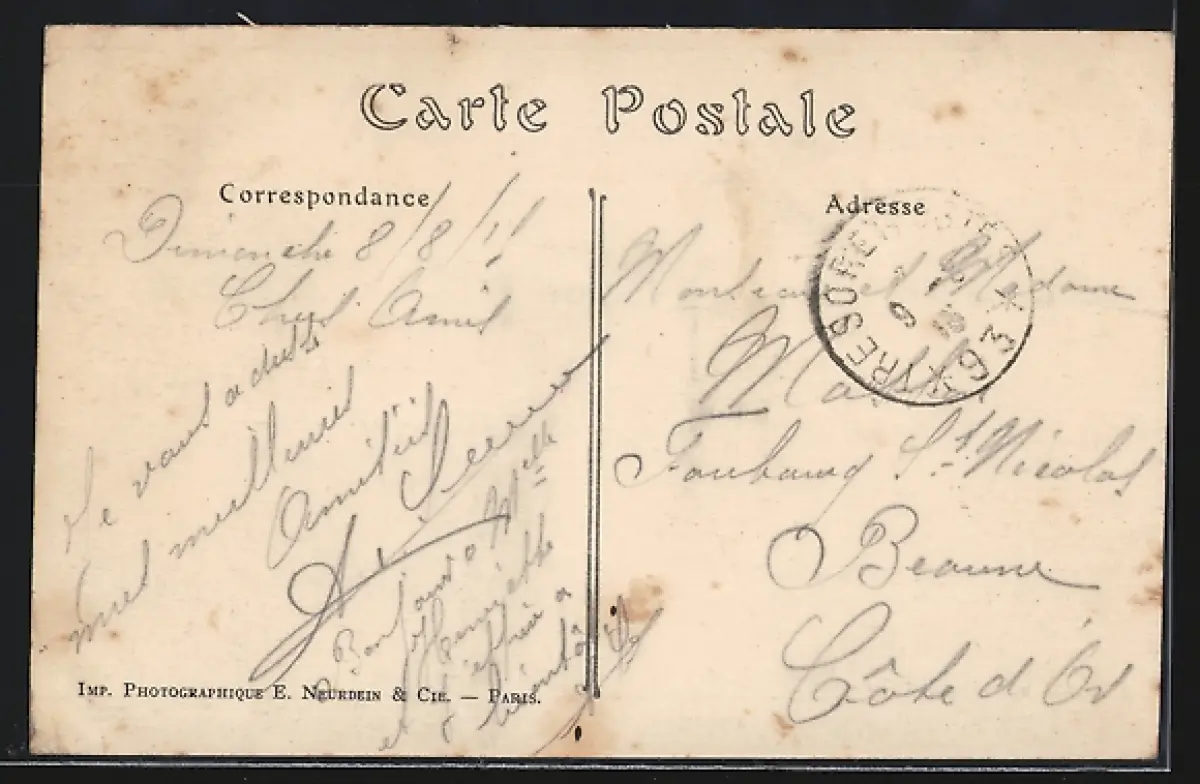 Carte Postale
Correspondance
Dimanche 8/8/15
Chers Amis
Je vous adresse
mes meilleures
Amitiés
Bonjour à Melle
Henriette
et j'espère à
à bientôt
IMP. PHOTOGRAPHIQUE E. NEURDEIN & CIE. — PARIS.
Adresse
Monsieur et Madame
Faubourg St Nicolas
Beaune
Côte d'Or
93